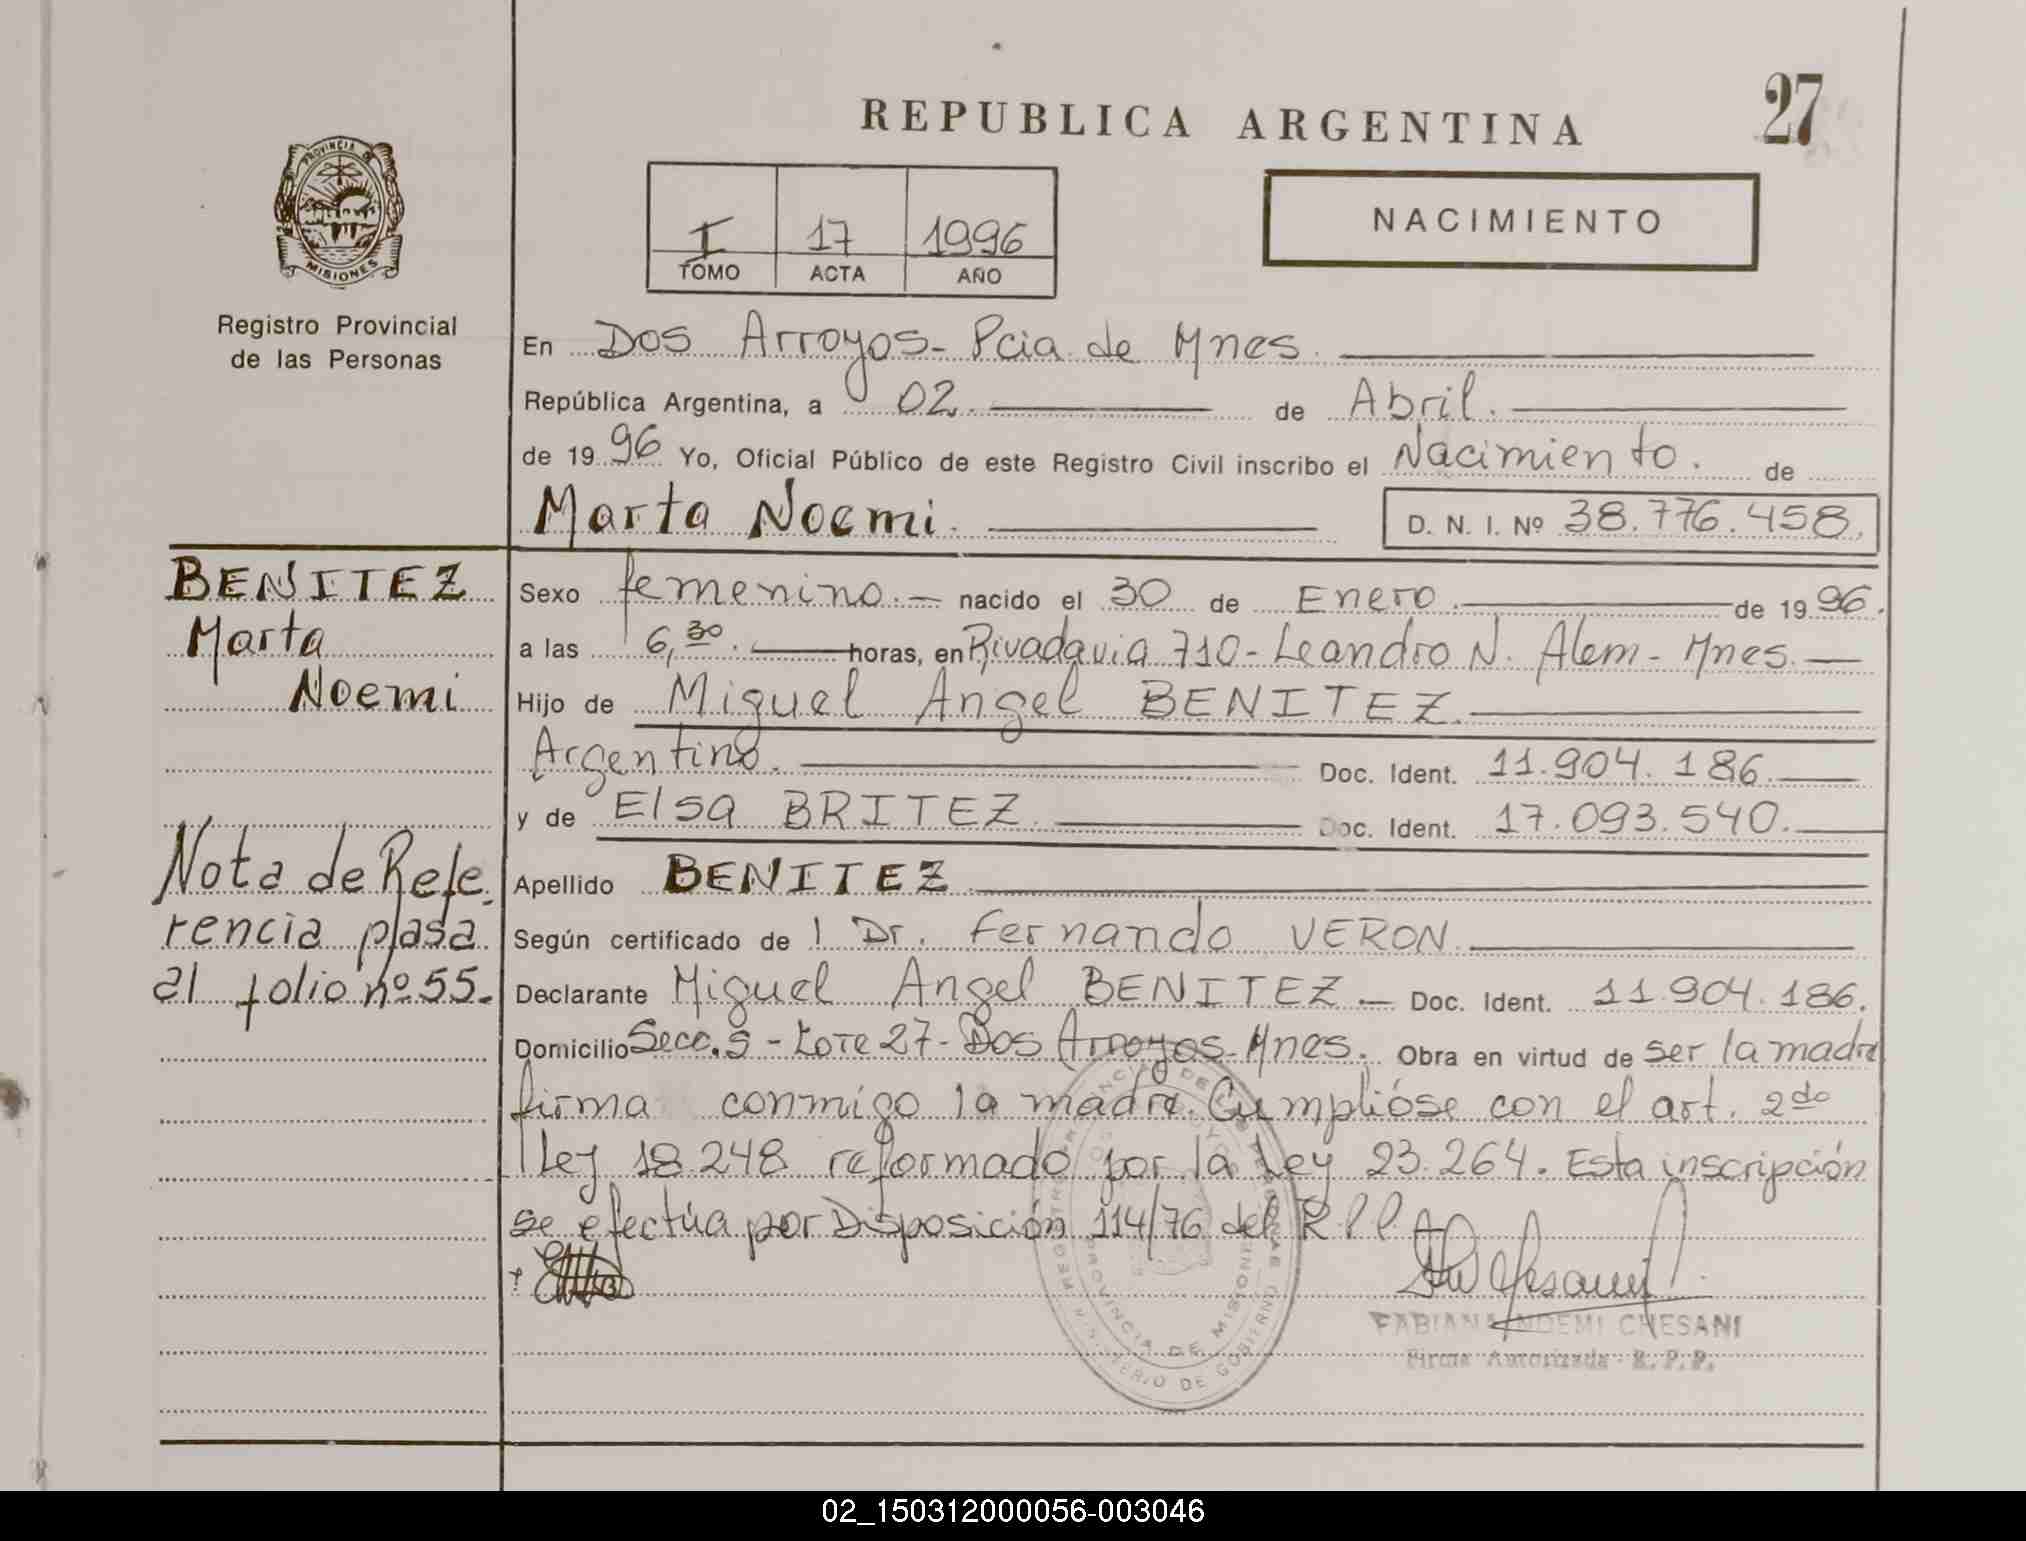 27
REPUBLICA ARGENTINA
PROVINCIA DE
MISIONES
Registro Provincial
de las Personas
I 17 1996
TOMO ACTA AÑO
NACIMIENTO
En Dos Arroyos - Pcia de Mnes.
República Argentina, a 02. de Abril.
de 19 96 Yo, Oficial Público de este Registro Civil inscribo el Nacimiento. de
Marta Noemi. D. N. I. Nº 38.776.458.
BENITEZ
Marta
Noemi
Nota de Refe-
rencia pasa
al folio nº 55.
Sexo femenino. nacido el 30 de Enero. de 19 96.
a las 6,30. horas, en Rivadavia 710 - Leandro N. Alem - Mnes.
Hijo de Miguel Angel BENITEZ.
Argentino. Doc. Ident. 11.904.186.
y de Elsa BRITEZ. Doc. Ident. 17.093.540.
Apellido BENITEZ.
Según certificado de l Dr. Fernando VERON.
Declarante Miguel Angel BENITEZ. Doc. Ident. 11.904.186.
Domicilio Secc. 9 - Lote 27 - Dos Arroyos - Mnes. Obra en virtud de ser la madre
firma conmigo la madre. Cumplióse con el art. 2do
Ley 18.248 reformado por la Ley 23.264. Esta inscripción
se efectúa por Disposición 114/76 del R.P.P.
PROVINCIA DE MISIONES
MINISTERIO DE GOBIERNO
FABIANA NOEMI CHESANI
Firma Autorizada - R. P. P.
02_150312000056-003046